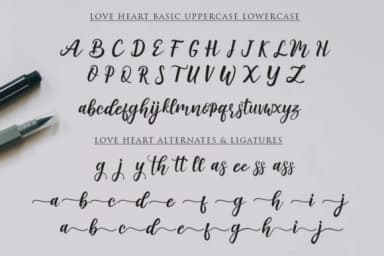 LOVE HEART BASIC UPPERCASE LOWERCASE
A B C D E F G H I J K L M N
O P Q R S T U V W X Y Z
abcdefghijklmnopqrstuvwxyz
LOVE HEART ALTERNATES & LIGATURES
g j y th tt ll as ee ss ass
a b c d e f g h i j
a b c d e f g h i j